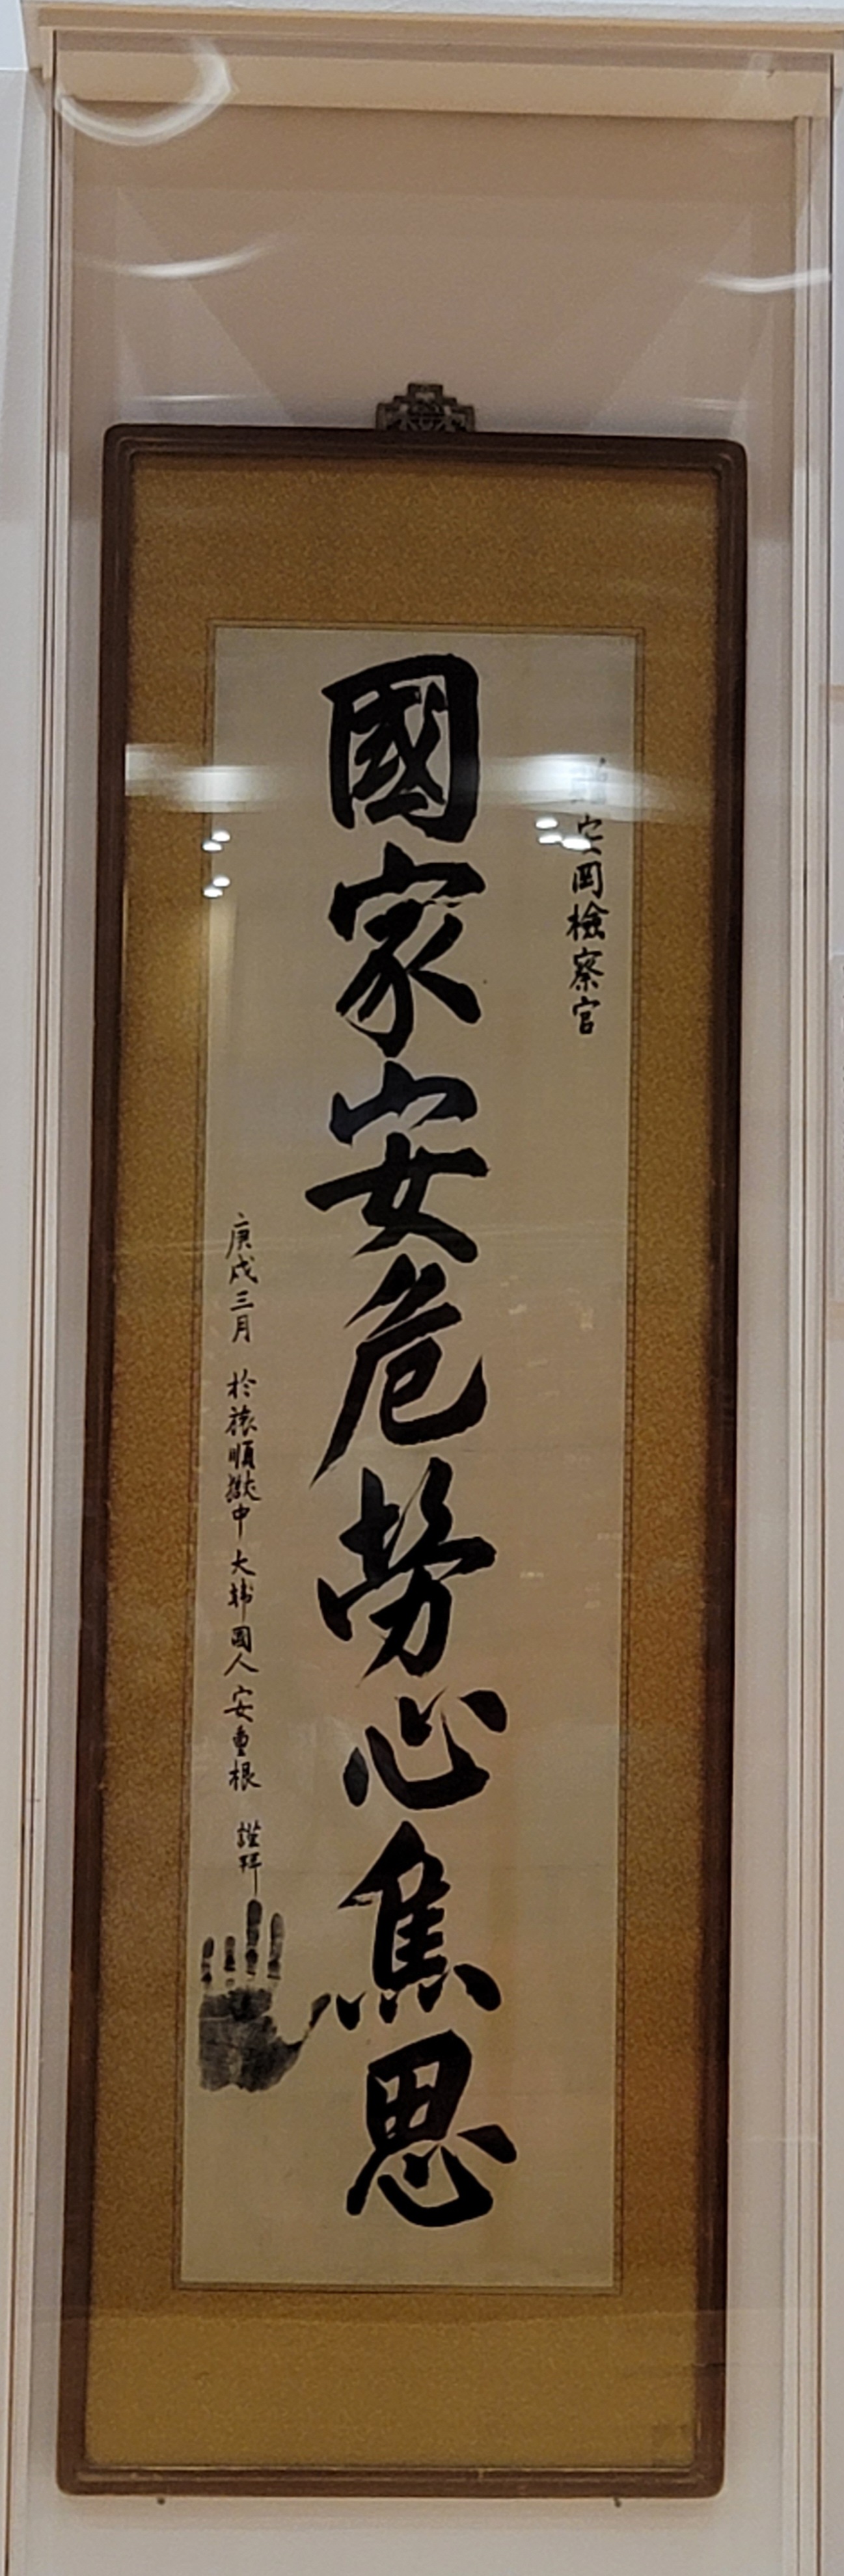 安岡檢察官
國家安危勞心焦思
庚戌三月 於旅順獄中 大韓國人 安重根 謹拜